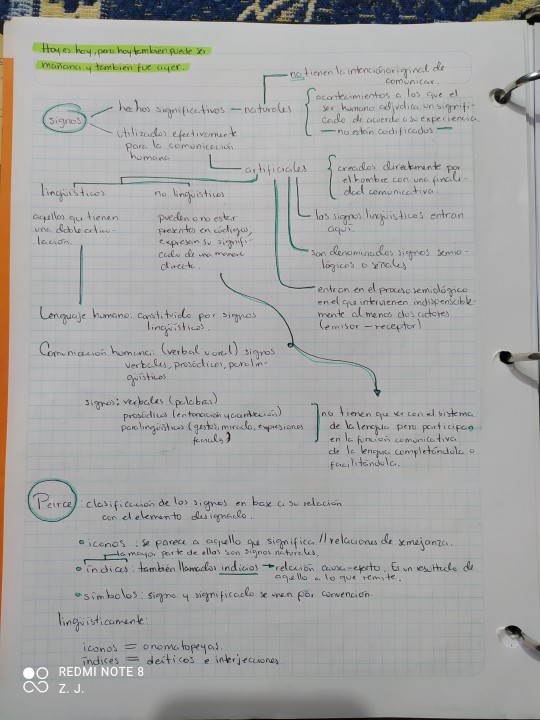 Hoy es hoy, pero hoy también puede ser
mañana y también fue ayer.
no tienen la intención original de
comunicar.
signos
hechos significativos — naturales
acontecimientos a los que el
ser humano adjudica un signifi-
cado de acuerdo a su experiencia
— no están codificados —
utilizados efectivamente
para la comunicación
humana
artificiales
creados directamente por
el hombre con una finali-
dad comunicativa.
lingüísticos
no lingüísticos
aquellos que tienen
una doble articu-
lación.
pueden o no estar
presentes en códigos,
expresan su signifi-
cado de una manera
directa.
los signos lingüísticos entran
aquí.
son denominados signos semio-
lógicos o señales
entran en el proceso semiológico
en el que intervienen indispensable-
mente al menos dos actores
(emisor - receptor)
Lenguaje humano: constituido por signos
lingüísticos.
Comunicación humana: (verbal u oral) signos
verbales, prosódicos, paralin-
güísticos
signos: verbales (palabras)
prosódicos (entonación y acentuación)
paralingüísticos (gestos, mirada, expresiones
faciales)
no tienen que ver con el sistema
de la lengua pero participan
en la función comunicativa
de la lengua completándola o
facilitándola.
Peirce: clasificación de los signos en base a su relación
con el elemento designado.
iconos: se parece a aquello que significa // relaciones de semejanza.
la mayor parte de ellos son signos naturales.
índices: también llamados indicios → relación causa-efecto. Es un resultado de
aquello a lo que remite.
símbolos: signo y significado se unen por convención.
lingüísticamente:
iconos = onomatopeyas.
índices = deícticos e interjecciones
REDMI NOTE 8
Z. J.